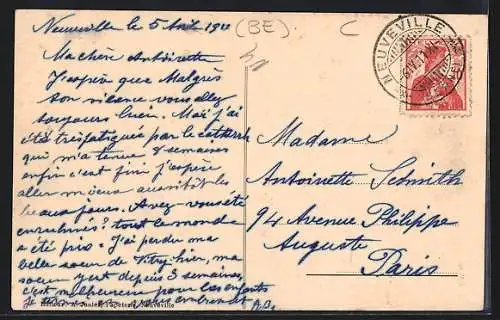 Neuveville le 5 Avril 19
(BE) C
Ma chère Antoinette
J'espère que Malgrès
son silence vous allez
toujours bien. Moi j'ai
été très fatiguée par le catarrhe
qui m'a tenue 7 semaines
enfin c'est fini j'espère
aller mieux aussitôt les
beaux jours. Avez-vous été
enrhumés? tout le monde
a été pris. J'ai perdu ma
belle soeur de Vitry hier, ma
soeur y est depuis 3 semaines,
c'est malheureux pour les enfants
Je
NEUVEVILLE
HELVETIA
Madame
Antoinette Schmith
94 Avenue Philippe
Auguste
Paris